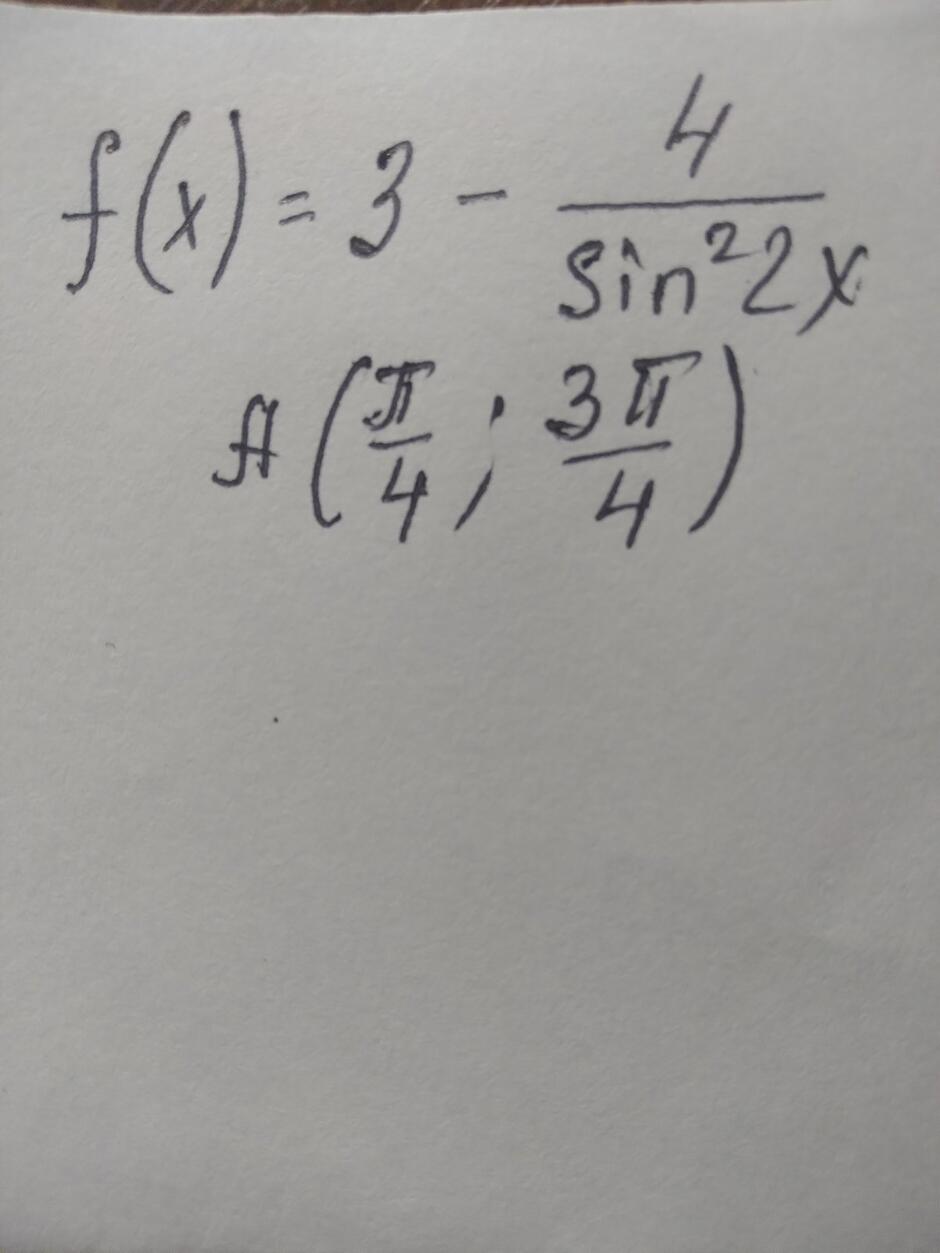 f(x) = 3 - 4/sin²2x
A(π/4; 3π/4)